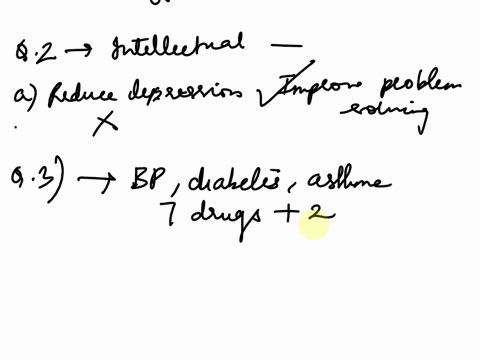 Q.2 → Intellectual —
a) Reduce depression ✓Improve problem
solving
Q.3) → BP, diabetes, asthma
7 drugs + 2